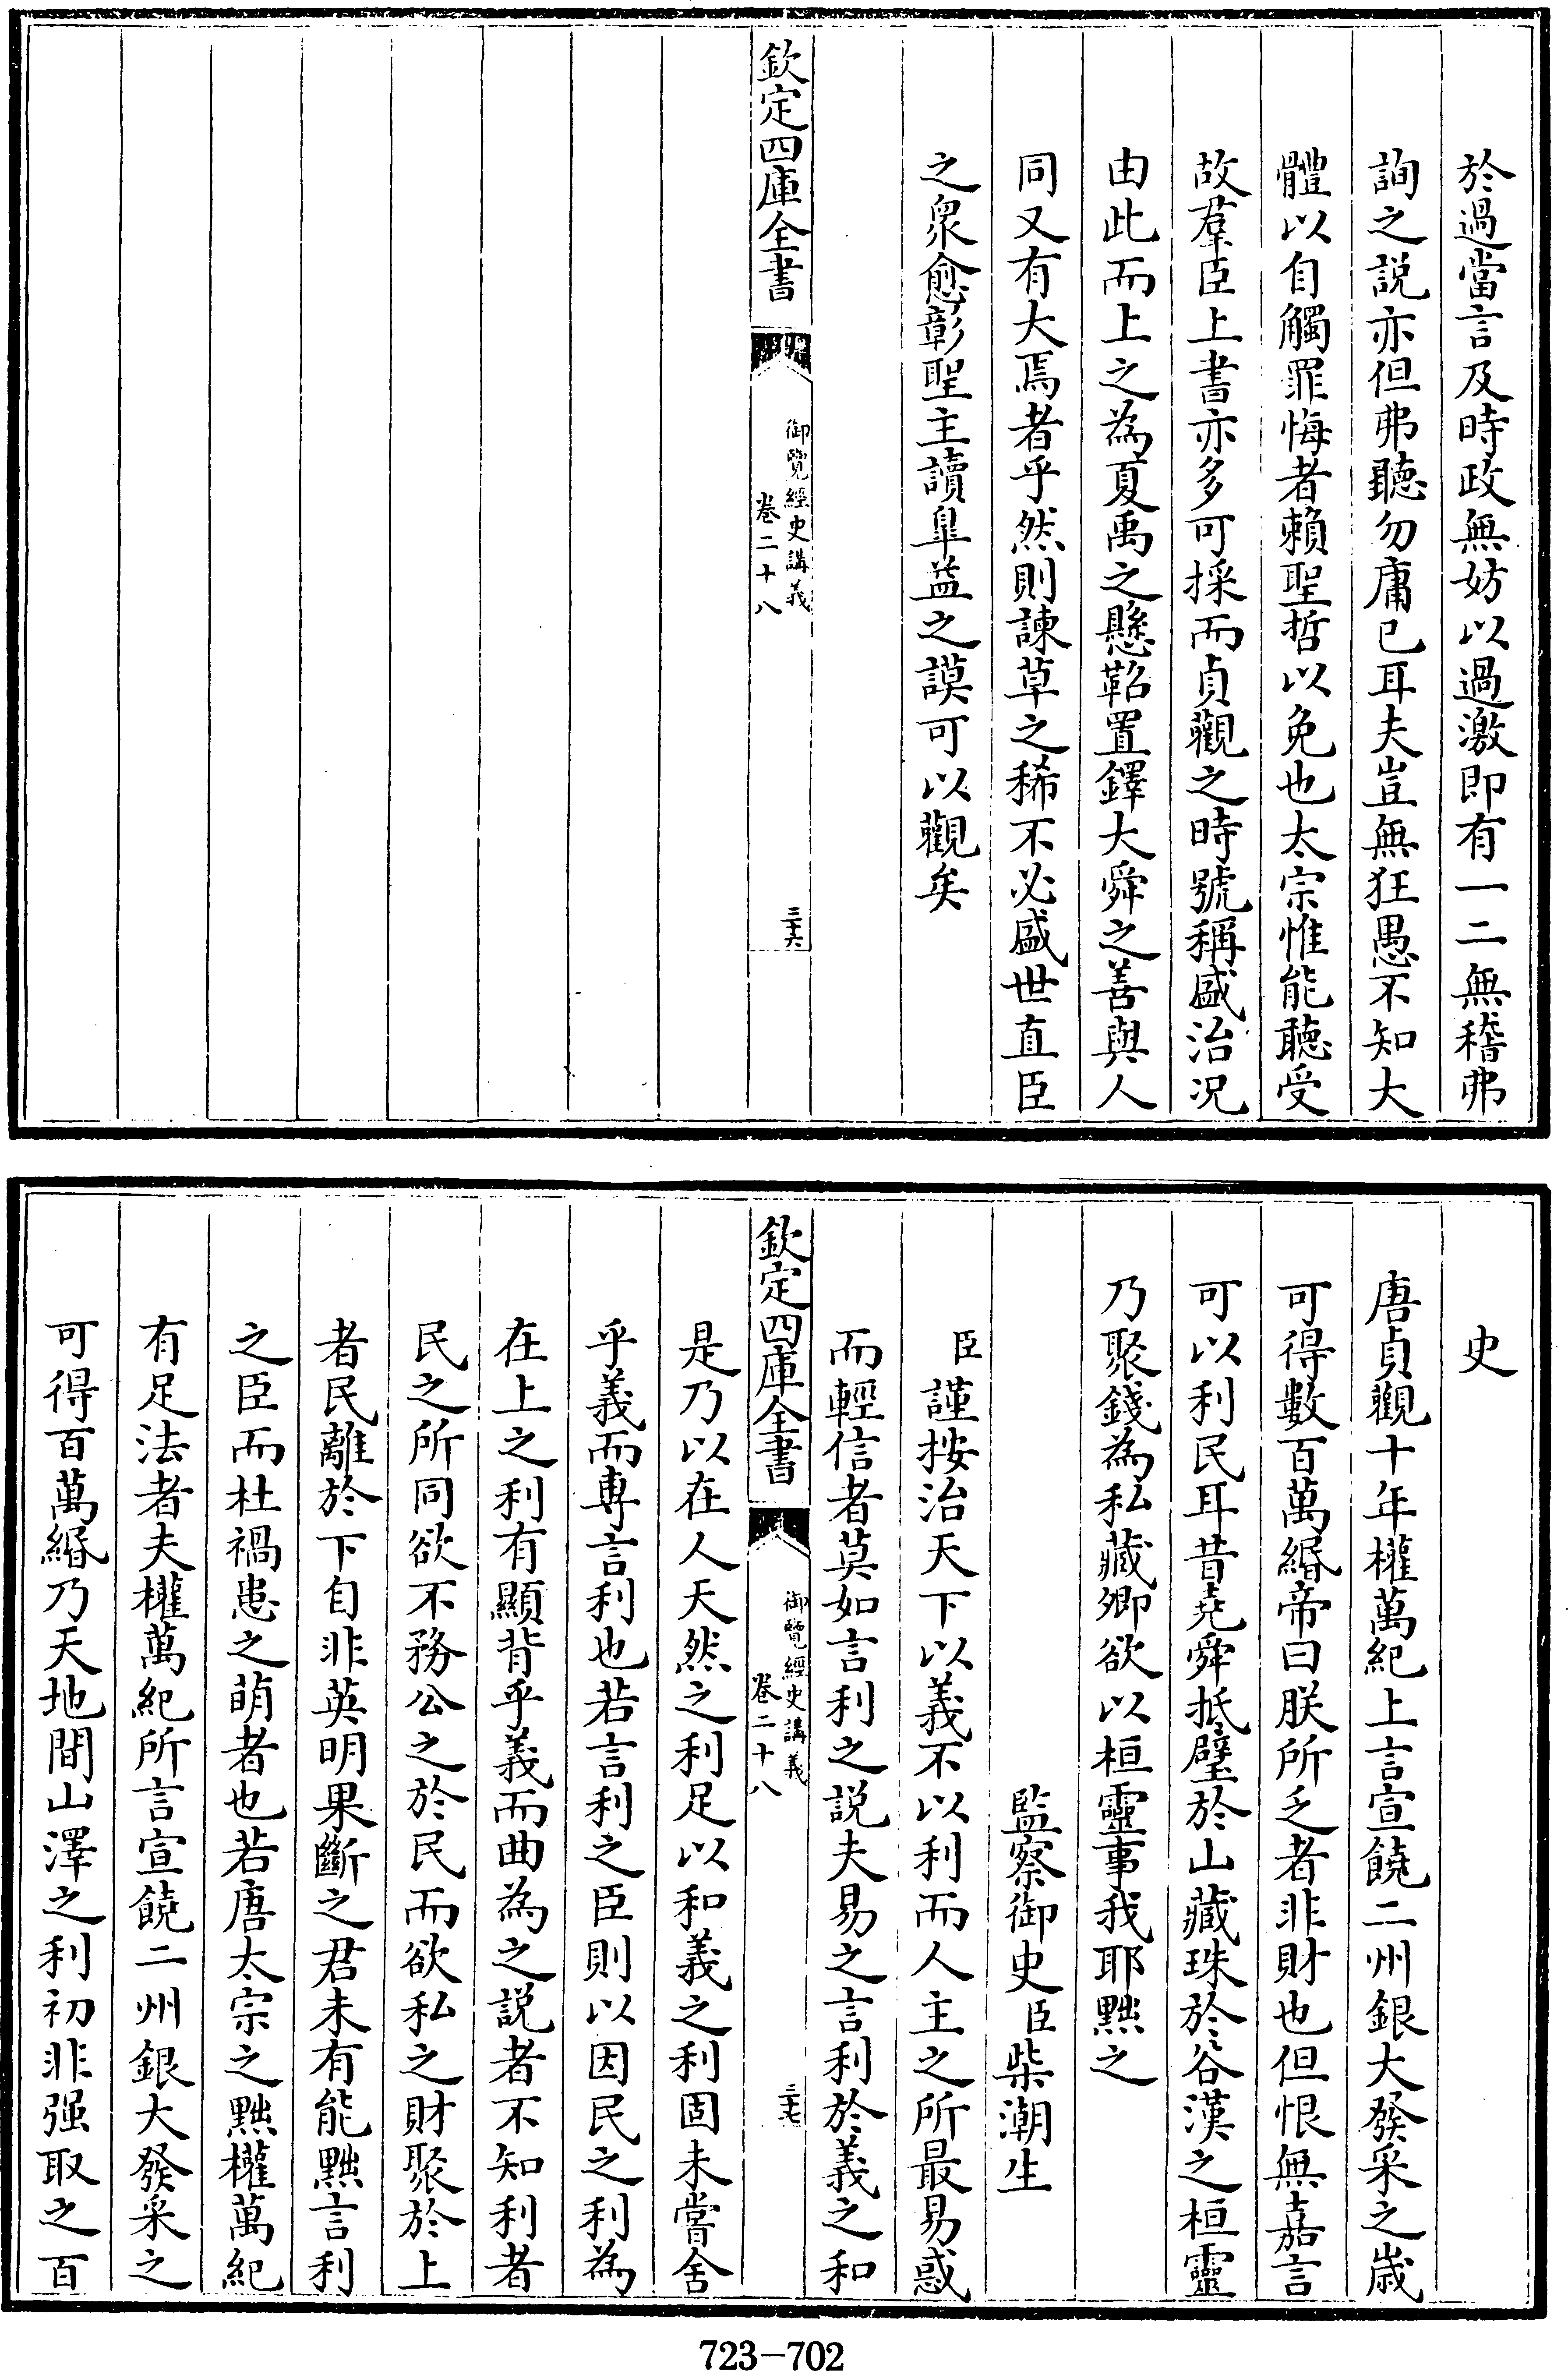 於過當言及時政無妨以過激即有一二無稽弗
詢之説亦但弗聽勿庸已耳夫豈無狂愚不知大
體以自觸罪悔者賴聖哲以免也太宗惟能聽受
故羣臣上書亦多可採而貞觀之時號稱盛治况
由此而上之為夏禹之懸鞀置鐸大舜之善與人
同又有大焉者乎然則諫草之稀不必盛世直臣
之衆愈彰聖主讀臯益之謨可以觀矣
欽定四庫全書
御覽經史講義
卷二十八
三十六
史
唐貞觀十年權萬紀上言宣饒二州銀大發采之歳
可得數百萬緡帝曰朕所乏者非財也但恨無嘉言
可以利民耳昔堯舜抵璧於山藏珠於谷漢之桓靈
乃聚錢為私藏卿欲以桓靈事我耶黜之
監察御史臣柴潮生
臣謹按治天下以義不以利而人主之所最易惑
而輕信者莫如言利之説夫易之言利於義之和
欽定四庫全書
御覽經史講義
卷二十八
三十七
是乃以在人天然之利足以和義之利固未嘗舍
乎義而專言利也若言利之臣則以因民之利為
在上之利有顯背乎義而曲為之説者不知利者
民之所同欲不務公之於民而欲私之財聚於上
者民離於下自非英明果斷之君未有能黜言利
之臣而杜禍患之萌者也若唐太宗之黜權萬紀
有足法者夫權萬紀所言宣饒二州銀大發采之
可得百萬緡乃天地間山澤之利初非强取之百
723-702